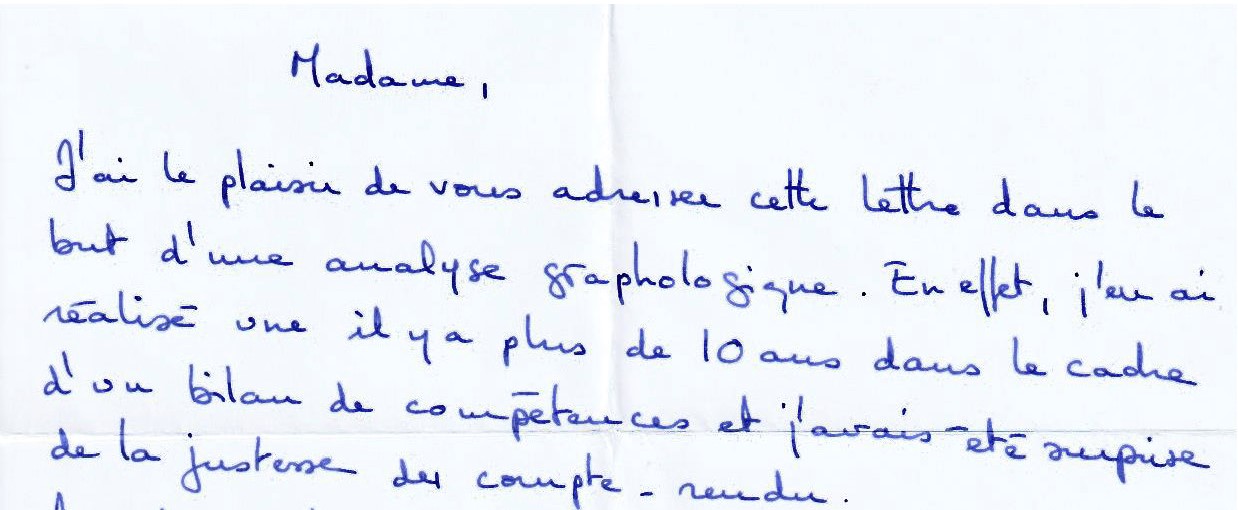 Madame,
J'ai le plaisir de vous adresser cette lettre dans le
but d'une analyse graphologique. En effet, j'en ai
réalisé une il y a plus de 10 ans dans le cadre
d'un bilan de compétences et j'avais été surprise
de la justesse du compte-rendu.